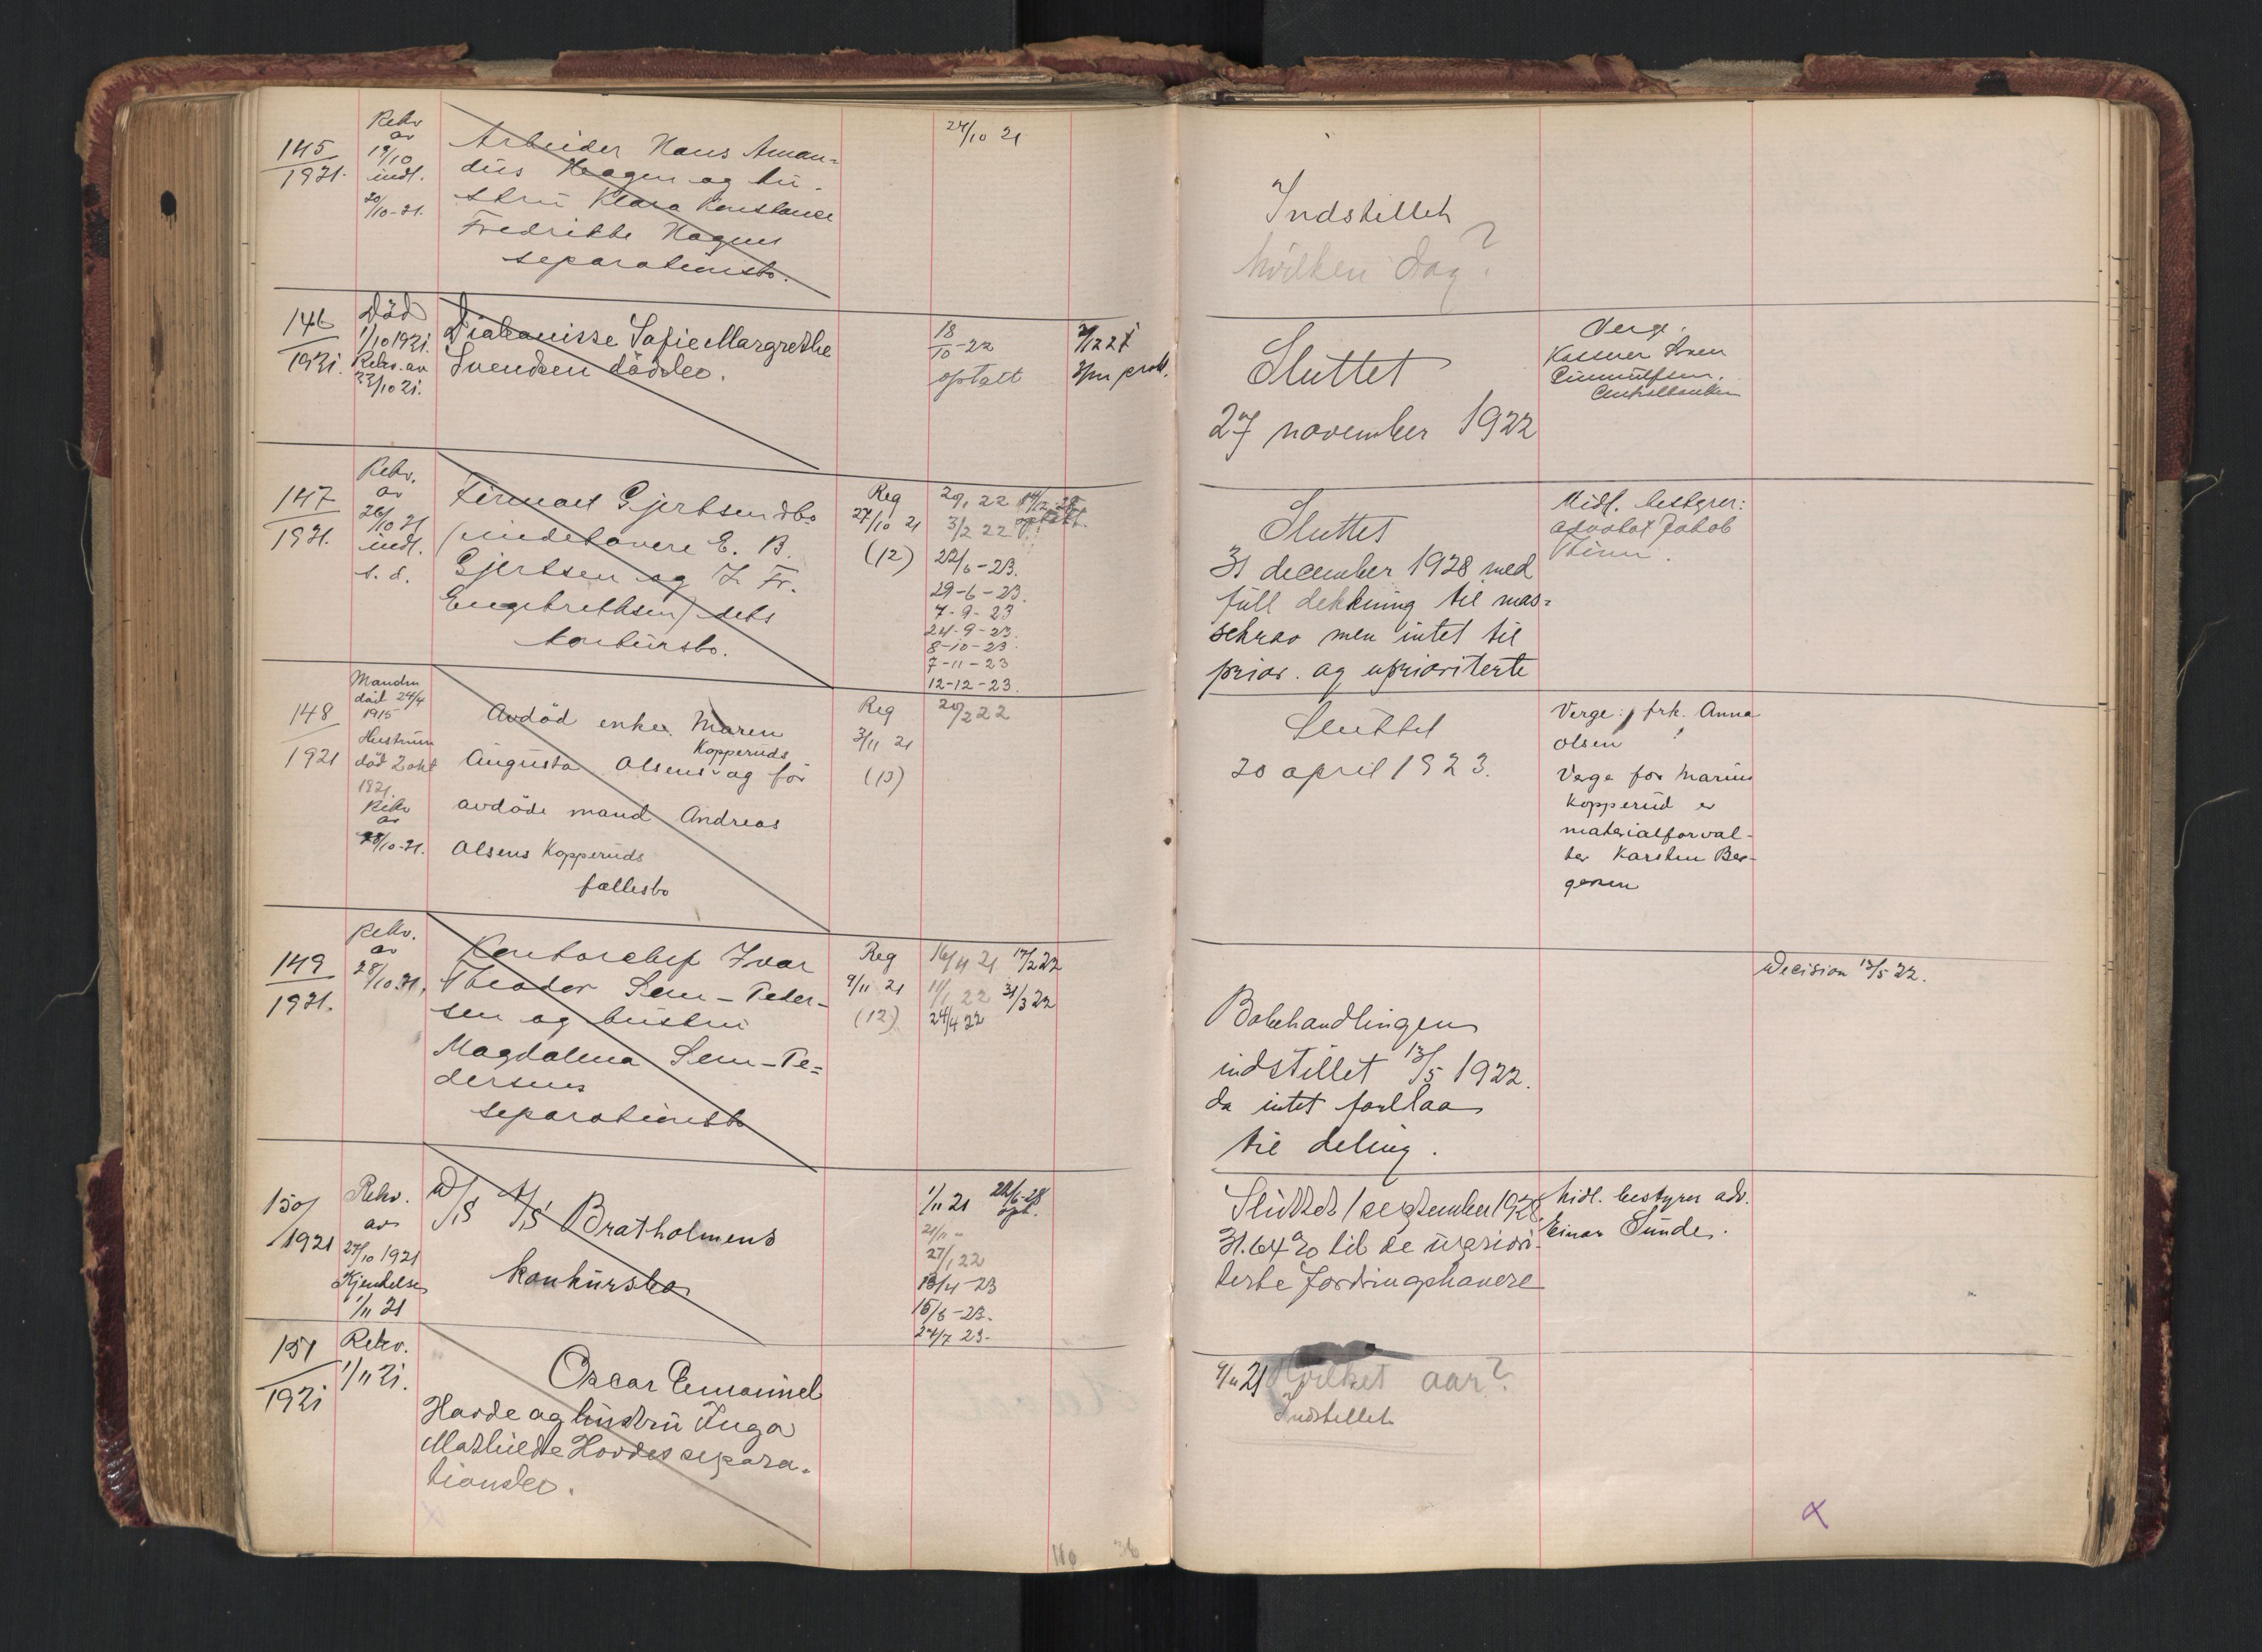 145
1921.
Rekv
av
19/10
indl.
20/10-21.
Arbeider Hans Aman=
dus Hagen og hu-
stru Klara Konstance
Fredrikke Hagens
separationsbo.
24/10 21
Indstillet
hvilken dag?
146
1921.
Död
1/10 1921.
Rekv. av
22/10 21.
Diakonisse Sofie Margrethe
Svendsen dödsbo.
18
10-22
optatt
Sluttet
27 november 1922
Verge:
Kasserer
Centralbanken
147
1921.
Rekv.
av
26/10 21
indl.
s. d.
Firmaet Gjertsen & Co
(indehavere E. B.
Gjertsen og J. Fr.
Engebrethsen) dets
konkursbo.
Reg
27/10 21
(12)
20/1 22
3/2 22
22/6-23.
29-6-23.
7-9-23
24-9-23.
8-10-23.
7-11-23
12-12-23.
Sluttet
31 december 1928 med
full dekkning til mas=
sekrav men intet til
prior. og uprioriterte
Midl. bestyrer:
advokat Jakob
148
1921
Manden
död 24/4
1915
Hustruen
död 2 okt
1921.
Rekv
av
28/10-21.
Avdöd enke Maren
Kopperuds
Augusta Olsens og for
avdöde mand Andreas
Olsens Kopperuds
fællesbo
Reg
3/11 21
(13)
20/2 22
Sluttet
20 april 1923.
Verge: frk. Anna
Olsen
Verge for Marius
Kopperud er
materialforval-
ter Karsten Ber-
gersen
149
1921.
Rekv.
av
28/10 21.
Kontorchef Ivar
Theodor Sem-Peder-
sen og hustru
Magdalena Sem-Pe=
dersens
separationsbo
Reg
9/11 21
(12)
16/11 21 17/2 22
11/1 22 31/3 22
24/4 22
Bobehandlingen
indstillet 13/5 1922.
da intet forelaa
til deling.
Decision 13/5 22.
150/
1921
Rekv.
av
27/10 1921
Kjendelse
1/11 21
D/S A/S Bratholmens
konkursbo
1/11 21 22/6-28
opt.
21/11 -
27/1 22
13/4-23
15/6-23.
24/7 23-
Sluttet 1 september 1928
31.64 % til de upriori-
terte fordringshavere
Midl. bestyrer adv.
Einar Sunde.
151
1921
Rekv.
1/11 21.
Oscar Emanuel
Hovde og hustru Inga
Mathilde Hovdes separa-
tionsbo.
9/11 21 Hvilket aar?
Indstillet
110